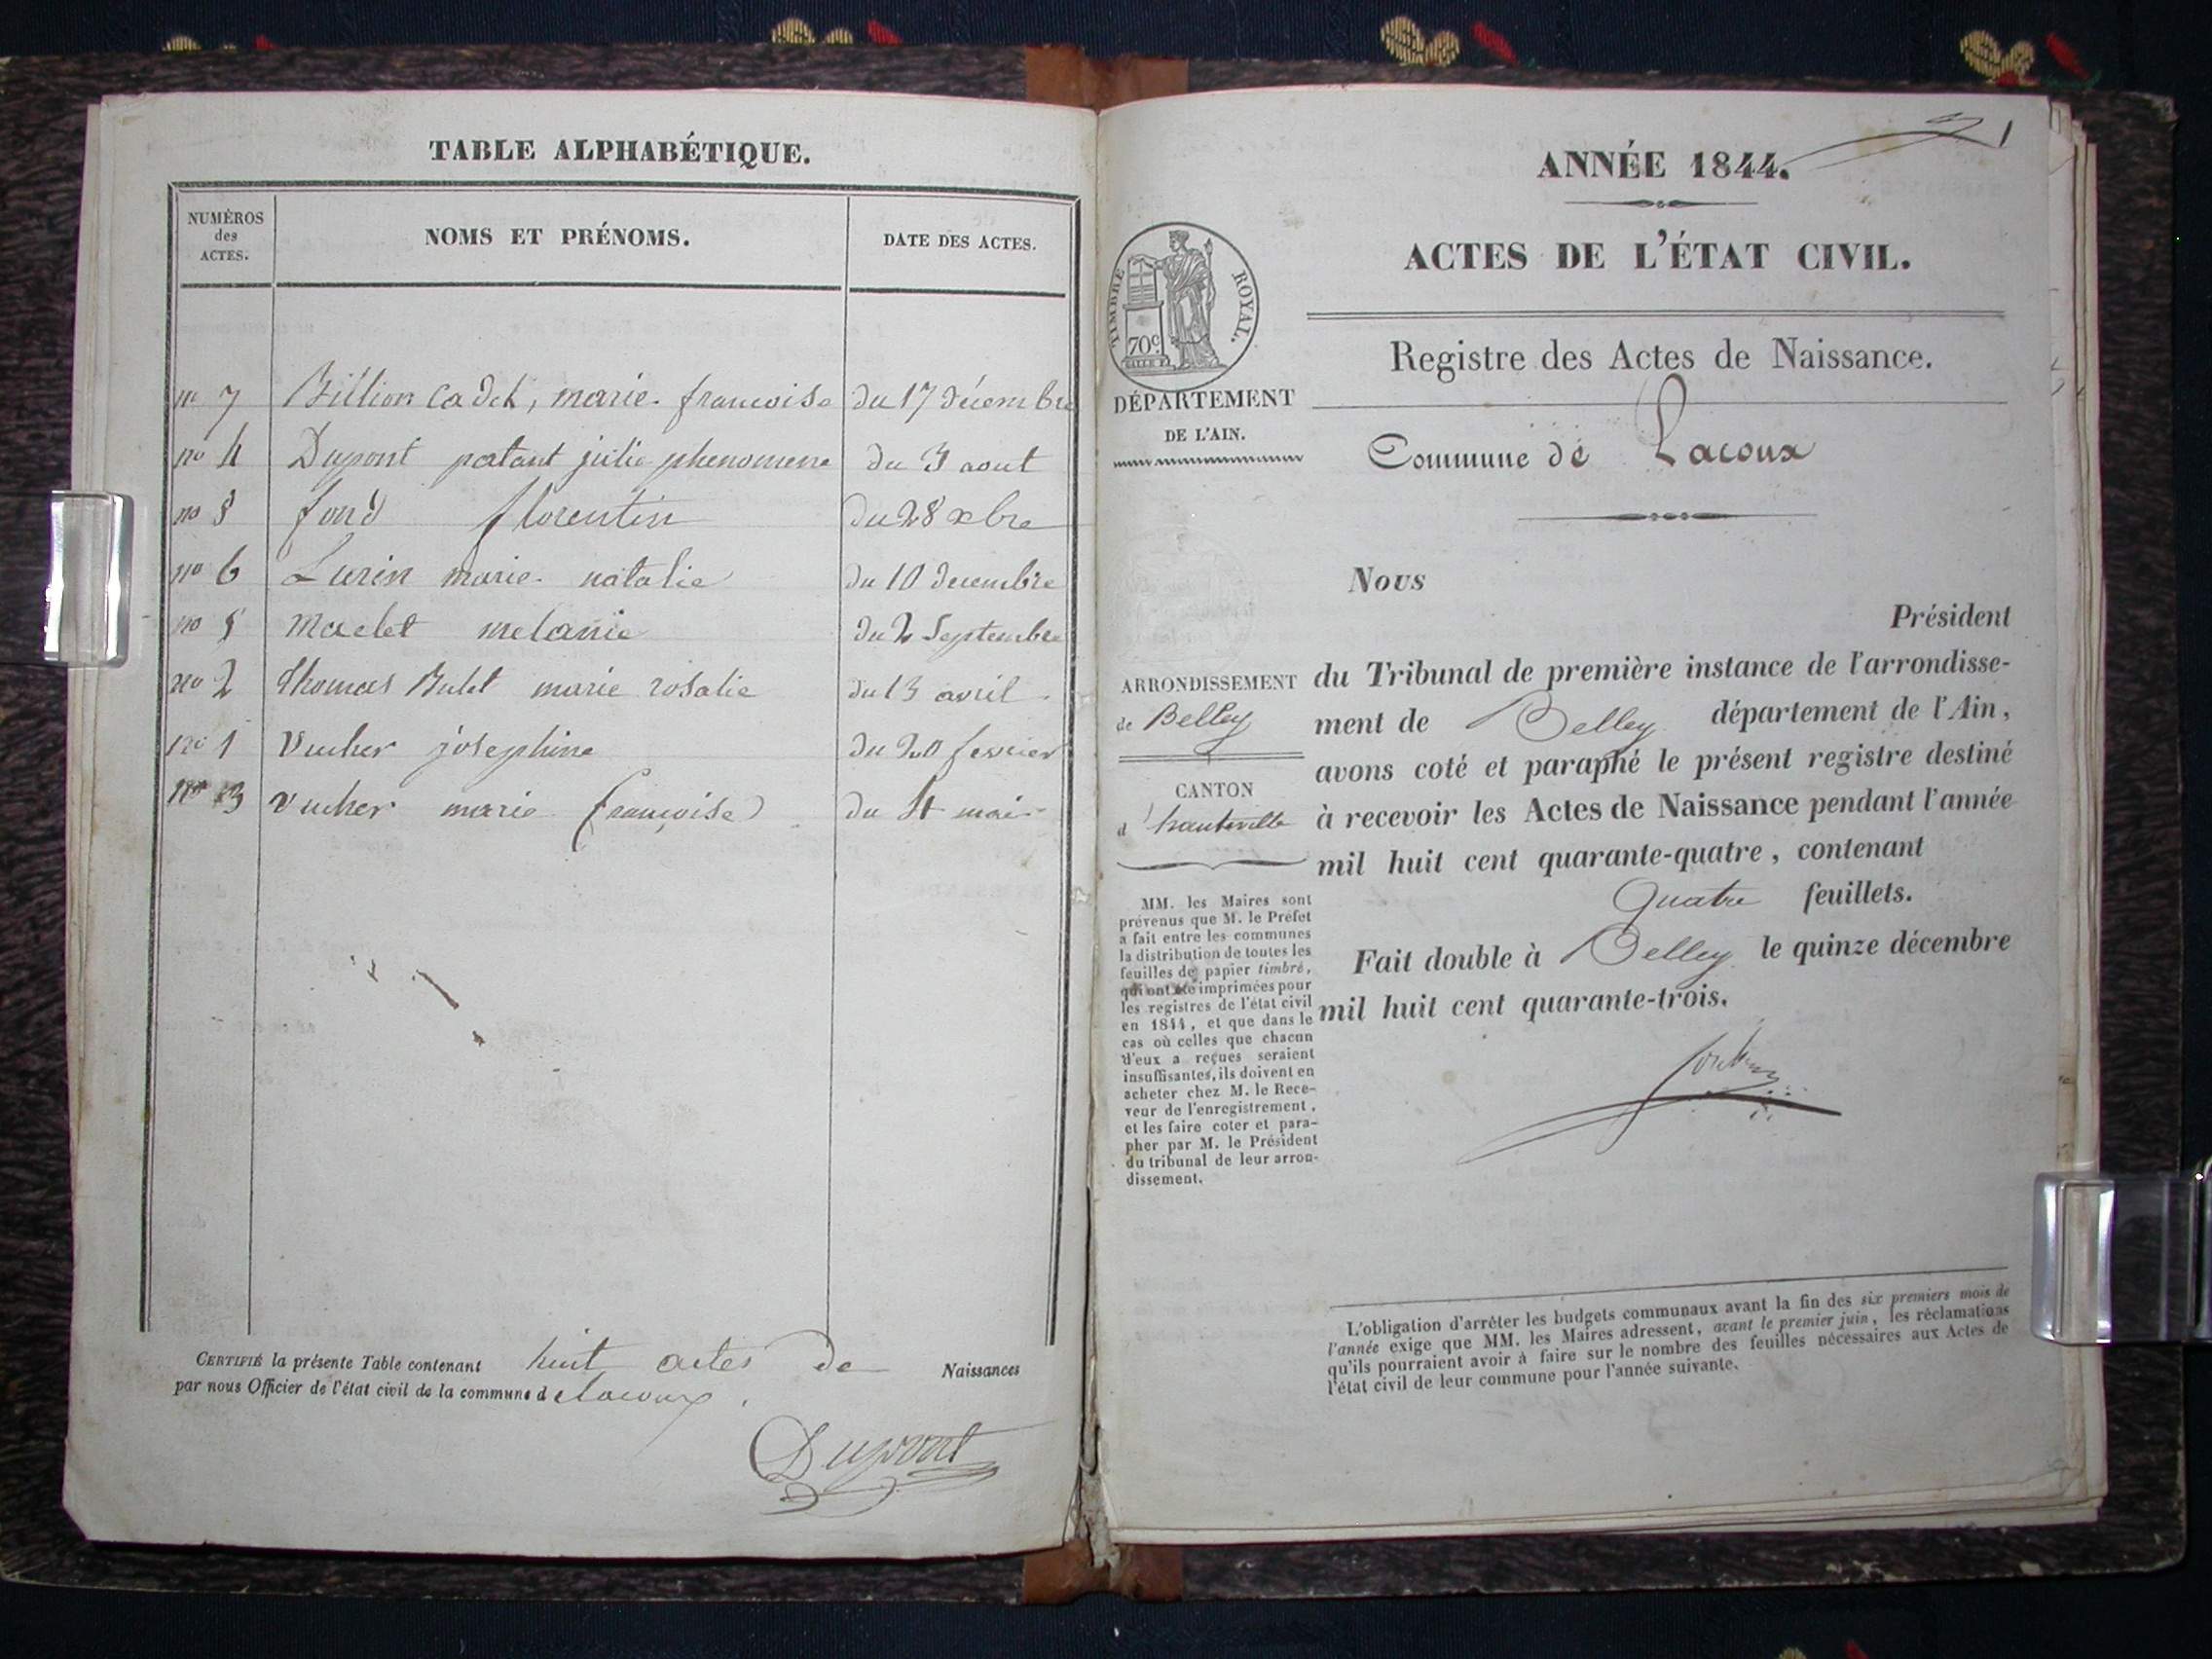 TABLE ALPHABÉTIQUE.
NUMÉROS des ACTES.
NOMS ET PRÉNOMS.
DATE DES ACTES.
no 7 Billion Cadet, marie francoise du 17 décembre
no 4 Dupont patant julie phenomene du 3 aout
no 8 fond florentin du 28 xbre
no 6 Lurin marie natalie du 10 decembre
no 5 Maclet melanie du 2 Septembre
no 2 Thomas Bulet marie rosalie du 13 avril
no 1 Vucher josephine du 20 fevrier
no 3 vucher marie françoise du 4 mai
CERTIFIÉ la présente Table contenant huit actes de Naissances
par nous Officier de l'état civil de la commune d elacoux.
Dupont
1
ANNÉE 1844.
ACTES DE L'ÉTAT CIVIL.
TIMBRE ROYAL.
70c
Registre des Actes de Naissance.
DÉPARTEMENT
DE L'AIN.
Commune de Lacoux
Nous
Président
ARRONDISSEMENT
de Belley
CANTON
d'hauteville
du Tribunal de première instance de l'arrondisse-
ment de Belley département de l'Ain,
avons coté et paraphé le présent registre destiné
à recevoir les Actes de Naissance pendant l'année
mil huit cent quarante-quatre, contenant
Quatre feuillets.
Fait double à Belley le quinze décembre
mil huit cent quarante-trois.
MM. les Maires sont
prévenus que M. le Préfet
a fait entre les communes
la distribution de toutes les
feuilles de papier timbré,
qui ont été imprimées pour
les registres de l'état civil
en 1844, et que dans le
cas où celles que chacun
d'eux a reçues seraient
insuffisantes, ils doivent en
acheter chez M. le Rece-
veur de l'enregistrement,
et les faire coter et para-
pher par M. le Président
du tribunal de leur arron-
dissement.
L'obligation d'arrêter les budgets communaux avant la fin des six premiers mois de
l'année exige que MM. les Maires adressent, avant le premier juin, les réclamations
qu'ils pourraient avoir à faire sur le nombre des feuilles nécessaires aux Actes de
l'état civil de leur commune pour l'année suivante.